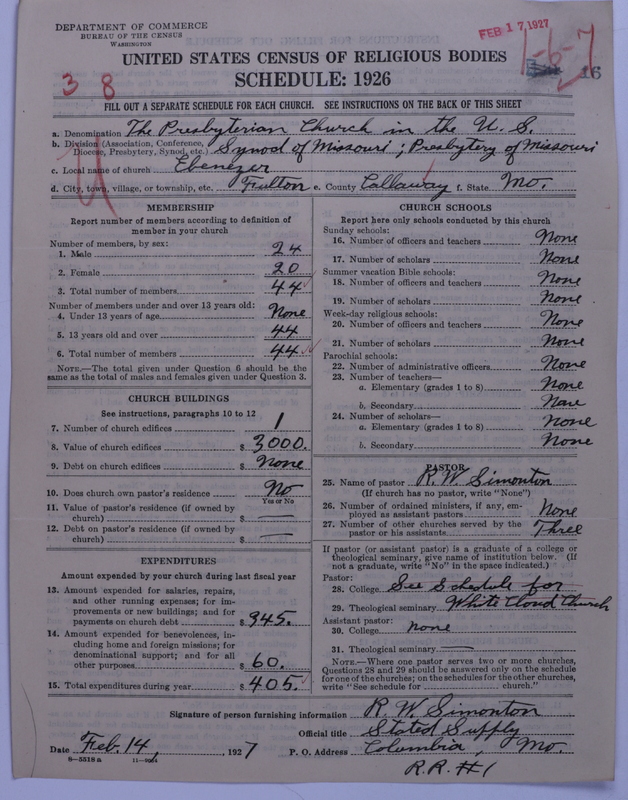 DEPARTMENT OF COMMERCE
BUREAU OF THE CENSUS
WASHINGTON
FEB 17, 1927
1-6-7
16
3 8
UNITED STATES CENSUS OF RELIGIOUS BODIES
SCHEDULE: 1926
FILL OUT A SEPARATE SCHEDULE FOR EACH CHURCH. SEE INSTRUCTIONS ON THE BACK OF THIS SHEET
a. Denomination The Presbyterian Church in the U. S.
b. Division (Association, Conference, Diocese, Presbytery, Synod, etc.) Synod of Missouri; Presbytery of Missouri
c. Local name of church Ebenezer
d. City, town, village, or township, etc. Fulton e. County Callaway f. State Mo.
MEMBERSHIP
Report number of members according to definition of
member in your church
Number of members, by sex:
1. Male 24
2. Female 20
3. Total number of members 44
Number of members under and over 13 years old:
4. Under 13 years of age None
5. 13 years old and over 44
6. Total number of members 44
NOTE.—The total given under Question 6 should be the
same as the total of males and females given under Question 3.
CHURCH BUILDINGS
See instructions, paragraphs 10 to 12
7. Number of church edifices 1
8. Value of church edifices $ 3000.
9. Debt on church edifices $ None
10. Does church own pastor's residence No
Yes or No
11. Value of pastor's residence (if owned by
church) $ —
12. Debt on pastor's residence (if owned by
church) $ —
EXPENDITURES
Amount expended by your church during last fiscal year
13. Amount expended for salaries, repairs,
and other running expenses; for im-
provements or new buildings; and for
payments on church debt $ 345.
14. Amount expended for benevolences, in-
cluding home and foreign missions; for
denominational support; and for all
other purposes $ 60.
15. Total expenditures during year $ 405.
CHURCH SCHOOLS
Report here only schools conducted by this church
Sunday schools:
16. Number of officers and teachers None
17. Number of scholars None
Summer vacation Bible schools:
18. Number of officers and teachers None
19. Number of scholars None
Week-day religious schools:
20. Number of officers and teachers None
21. Number of scholars None
Parochial schools:
22. Number of administrative officers None
23. Number of teachers—
a. Elementary (grades 1 to 8) None
b. Secondary None
24. Number of scholars—
a. Elementary (grades 1 to 8) None
b. Secondary None
PASTOR
25. Name of pastor R. W. Simonton
(If church has no pastor, write "None")
26. Number of ordained ministers, if any, em-
ployed as assistant pastors None
27. Number of other churches served by the
pastor or his assistants Three
If pastor (or assistant pastor) is a graduate of a college or
theological seminary, give name of institution below. (If
not a graduate, write "No" in the space indicated.)
Pastor:
28. College See Schedule for
29. Theological seminary White Cloud Church
Assistant pastor:
30. College none
31. Theological seminary —
NOTE.—Where one pastor serves two or more churches,
Questions 28 and 29 should be answered only on the schedule
for one of the churches; on the schedules for the other churches,
write "See schedule for ........ church."
Signature of person furnishing information R. W. Simonton
Official title Stated Supply
Date Feb. 14, 1927 P. O. Address Columbia, Mo.
R.R. #1